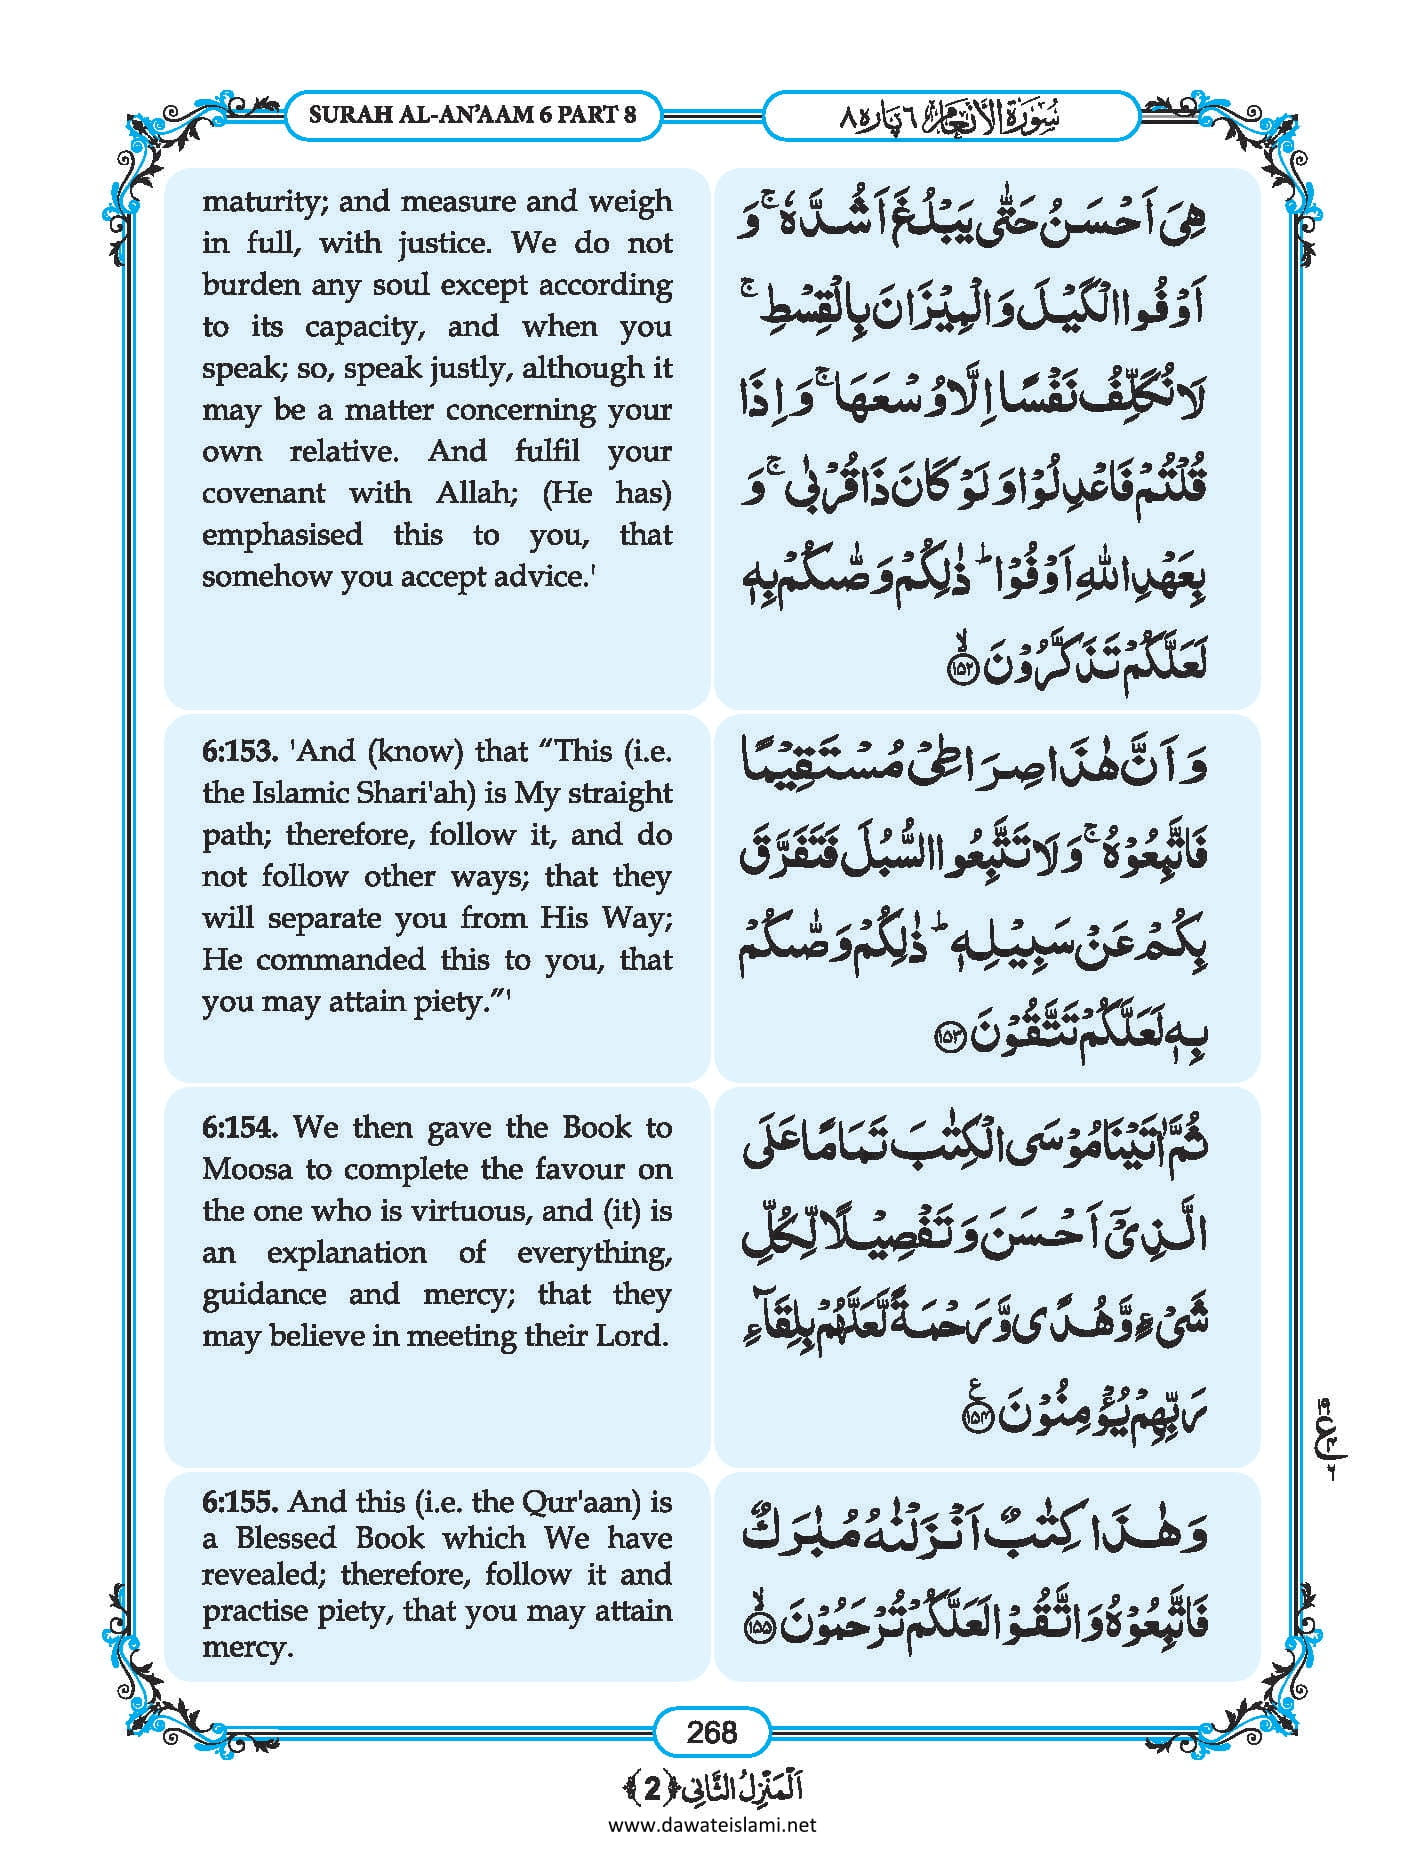 SURAH AL-AN'AAM 6 PART 8
سُوْرَةُ الْاَنْعَام ٦ پارہ ٨
maturity; and measure and weigh
in full, with justice. We do not
burden any soul except according
to its capacity, and when you
speak; so, speak justly, although it
may be a matter concerning your
own relative. And fulfil your
covenant with Allah; (He has)
emphasised this to you, that
somehow you accept advice.'
هِیَ اَحْسَنُ حَتّٰی یَبْلُغَ اَشُدَّهٗ ۚ وَ
اَوْفُوا الْكَیْلَ وَ الْمِیْزَانَ بِالْقِسْطِ ۚ
لَا نُكَلِّفُ نَفْسًا اِلَّا وُسْعَهَا ۚ وَ اِذَا
قُلْتُمْ فَاعْدِلُوْا وَ لَوْ كَانَ ذَا قُرْبٰی ۚ وَ
بِعَهْدِ اللّٰهِ اَوْفُوْا ؕ ذٰلِكُمْ وَصّٰىكُمْ بِهٖ
لَعَلَّكُمْ تَذَكَّرُوْنَ ۙ﴿۱۵۲﴾
6:153. 'And (know) that “This (i.e.
the Islamic Shari'ah) is My straight
path; therefore, follow it, and do
not follow other ways; that they
will separate you from His Way;
He commanded this to you, that
you may attain piety.”'
وَ اَنَّ هٰذَا صِرَاطِیْ مُسْتَقِیْمًا
فَاتَّبِعُوْهُ ۚ وَ لَا تَتَّبِعُوا السُّبُلَ فَتَفَرَّقَ
بِكُمْ عَنْ سَبِیْلِهٖ ؕ ذٰلِكُمْ وَصّٰىكُمْ
بِهٖ لَعَلَّكُمْ تَتَّقُوْنَ ﴿۱۵۳﴾
6:154. We then gave the Book to
Moosa to complete the favour on
the one who is virtuous, and (it) is
an explanation of everything,
guidance and mercy; that they
may believe in meeting their Lord.
ثُمَّ اٰتَیْنَا مُوْسَی الْكِتٰبَ تَمَامًا عَلَی
الَّذِیْۤ اَحْسَنَ وَ تَفْصِیْلًا لِّكُلِّ
شَیْءٍ وَّ هُدًی وَّ رَحْمَةً لَّعَلَّهُمْ بِلِقَآءِ
رَبِّهِمْ یُؤْمِنُوْنَ ﴿۱۵۴﴾ ع
6:155. And this (i.e. the Qur'aan) is
a Blessed Book which We have
revealed; therefore, follow it and
practise piety, that you may attain
mercy.
وَ هٰذَا كِتٰبٌ اَنْزَلْنٰهُ مُبٰرَكٌ
فَاتَّبِعُوْهُ وَ اتَّقُوْا لَعَلَّكُمْ تُرْحَمُوْنَ ۙ﴿۱۵۵﴾
268
اَلْمَنْزِلُ الثَّانِی ﴿2﴾
www.dawateislami.net